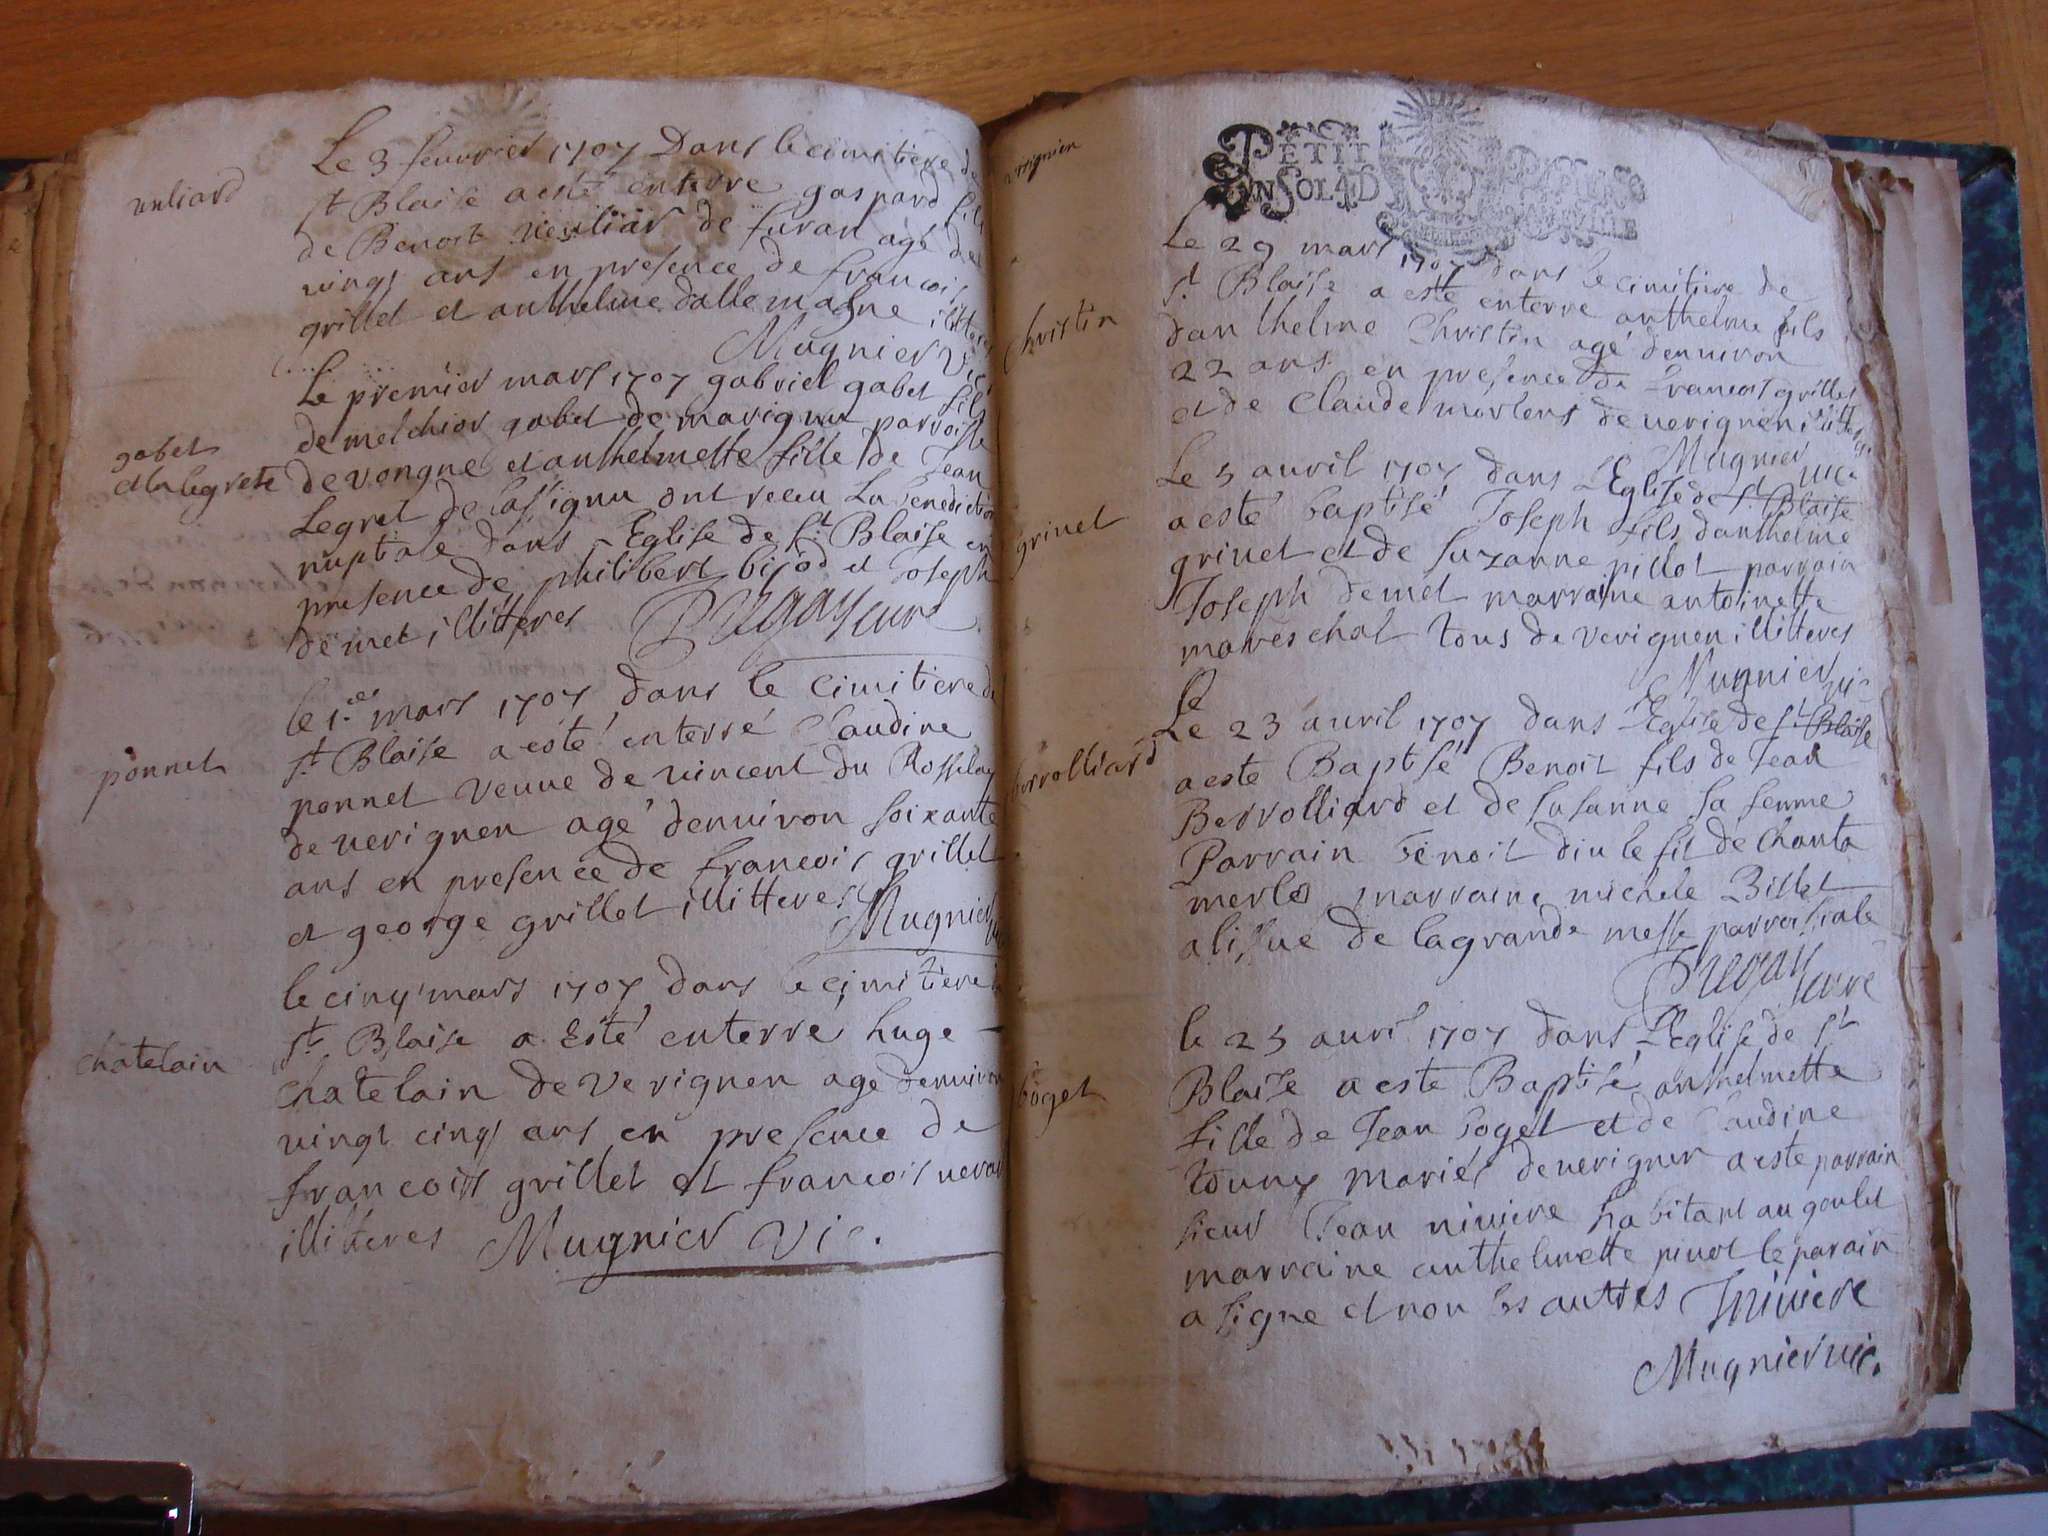 Le 3 feuvrier 1707 Dans le cimitiere de
uuliard
st Blaise a esté enterre gaspard fils
de Benoit veuliar de furan agé de
vingt ans en presence de francois
grillet et anthelme dallemagne illiteres
Mugnier Vic
Le premier mars 1707 gabriel gabet fils
de melchior gabet de marignu parroisse
gabet
et la legrete
de vongne et anthelmette fille de Jean
Legret de lassignu ont receu La benediction
nuptiale dans l'Eglise de st Blaise en
presence de philibert bijod et Joseph
demet illitteres Dugas curé
le 1.er mars 1707 dans le cimitiere de
st Blaise a esté enterré Claudine
ponnet
ponnet veuve de vincent du Rosselay
de verignen agé d'enuiron soixante
ans en presence de francois grillet
et george grillet illitteres Mugnier
le cinq mars 1707 dans le cimitiere de
st Blaise a Esté enterré huge
chatelain
chatelain de Verignen age denuiron
vingt cinq ans en presence de
francois grillet et francois
illitteres Mugnier Vic.
PETIT
UN SOL 4 D
Le 29 mars 1707 dans le cimitiere de
st Blaise a esté enterre anthelme fils
Christin
danthelme Christin agé denuiron
22 ans en presence de francois grillet
et de Claude merlens de uerignen illitteres
Mugnier uic
Le 5 auril 1707 dans l'Eglise de st Blaise
grinet
a esté baptisé Joseph fils danthelme
grinet et de suzanne pillot parrain
Joseph demet marraine antoinette
mareschal tous de verignen illitteres
Mugnier vic
le
Le 23 auril 1707 dans l'Eglise de st Blaise
berrolliard
a esté Baptisé Benoit fils de Jean
Berrolliard et de susanne sa femme
Parrain benoit diu le fil de Chanta
merle marraine michele Billet
a lissue de la grande messe parroissiale
Dugas curé
le 25 auril 1707 dans l'Eglise de st
boget
Blaise a esté Baptisé anthelmette
fille de Jean boget et de Claudine
touny mariés de uerignen a esté parrain
sieur Jean niuiere habitant au goulet
marraine anthelmette piuot le parain
a signe et non les autres J niuiere
Mugnier uic.